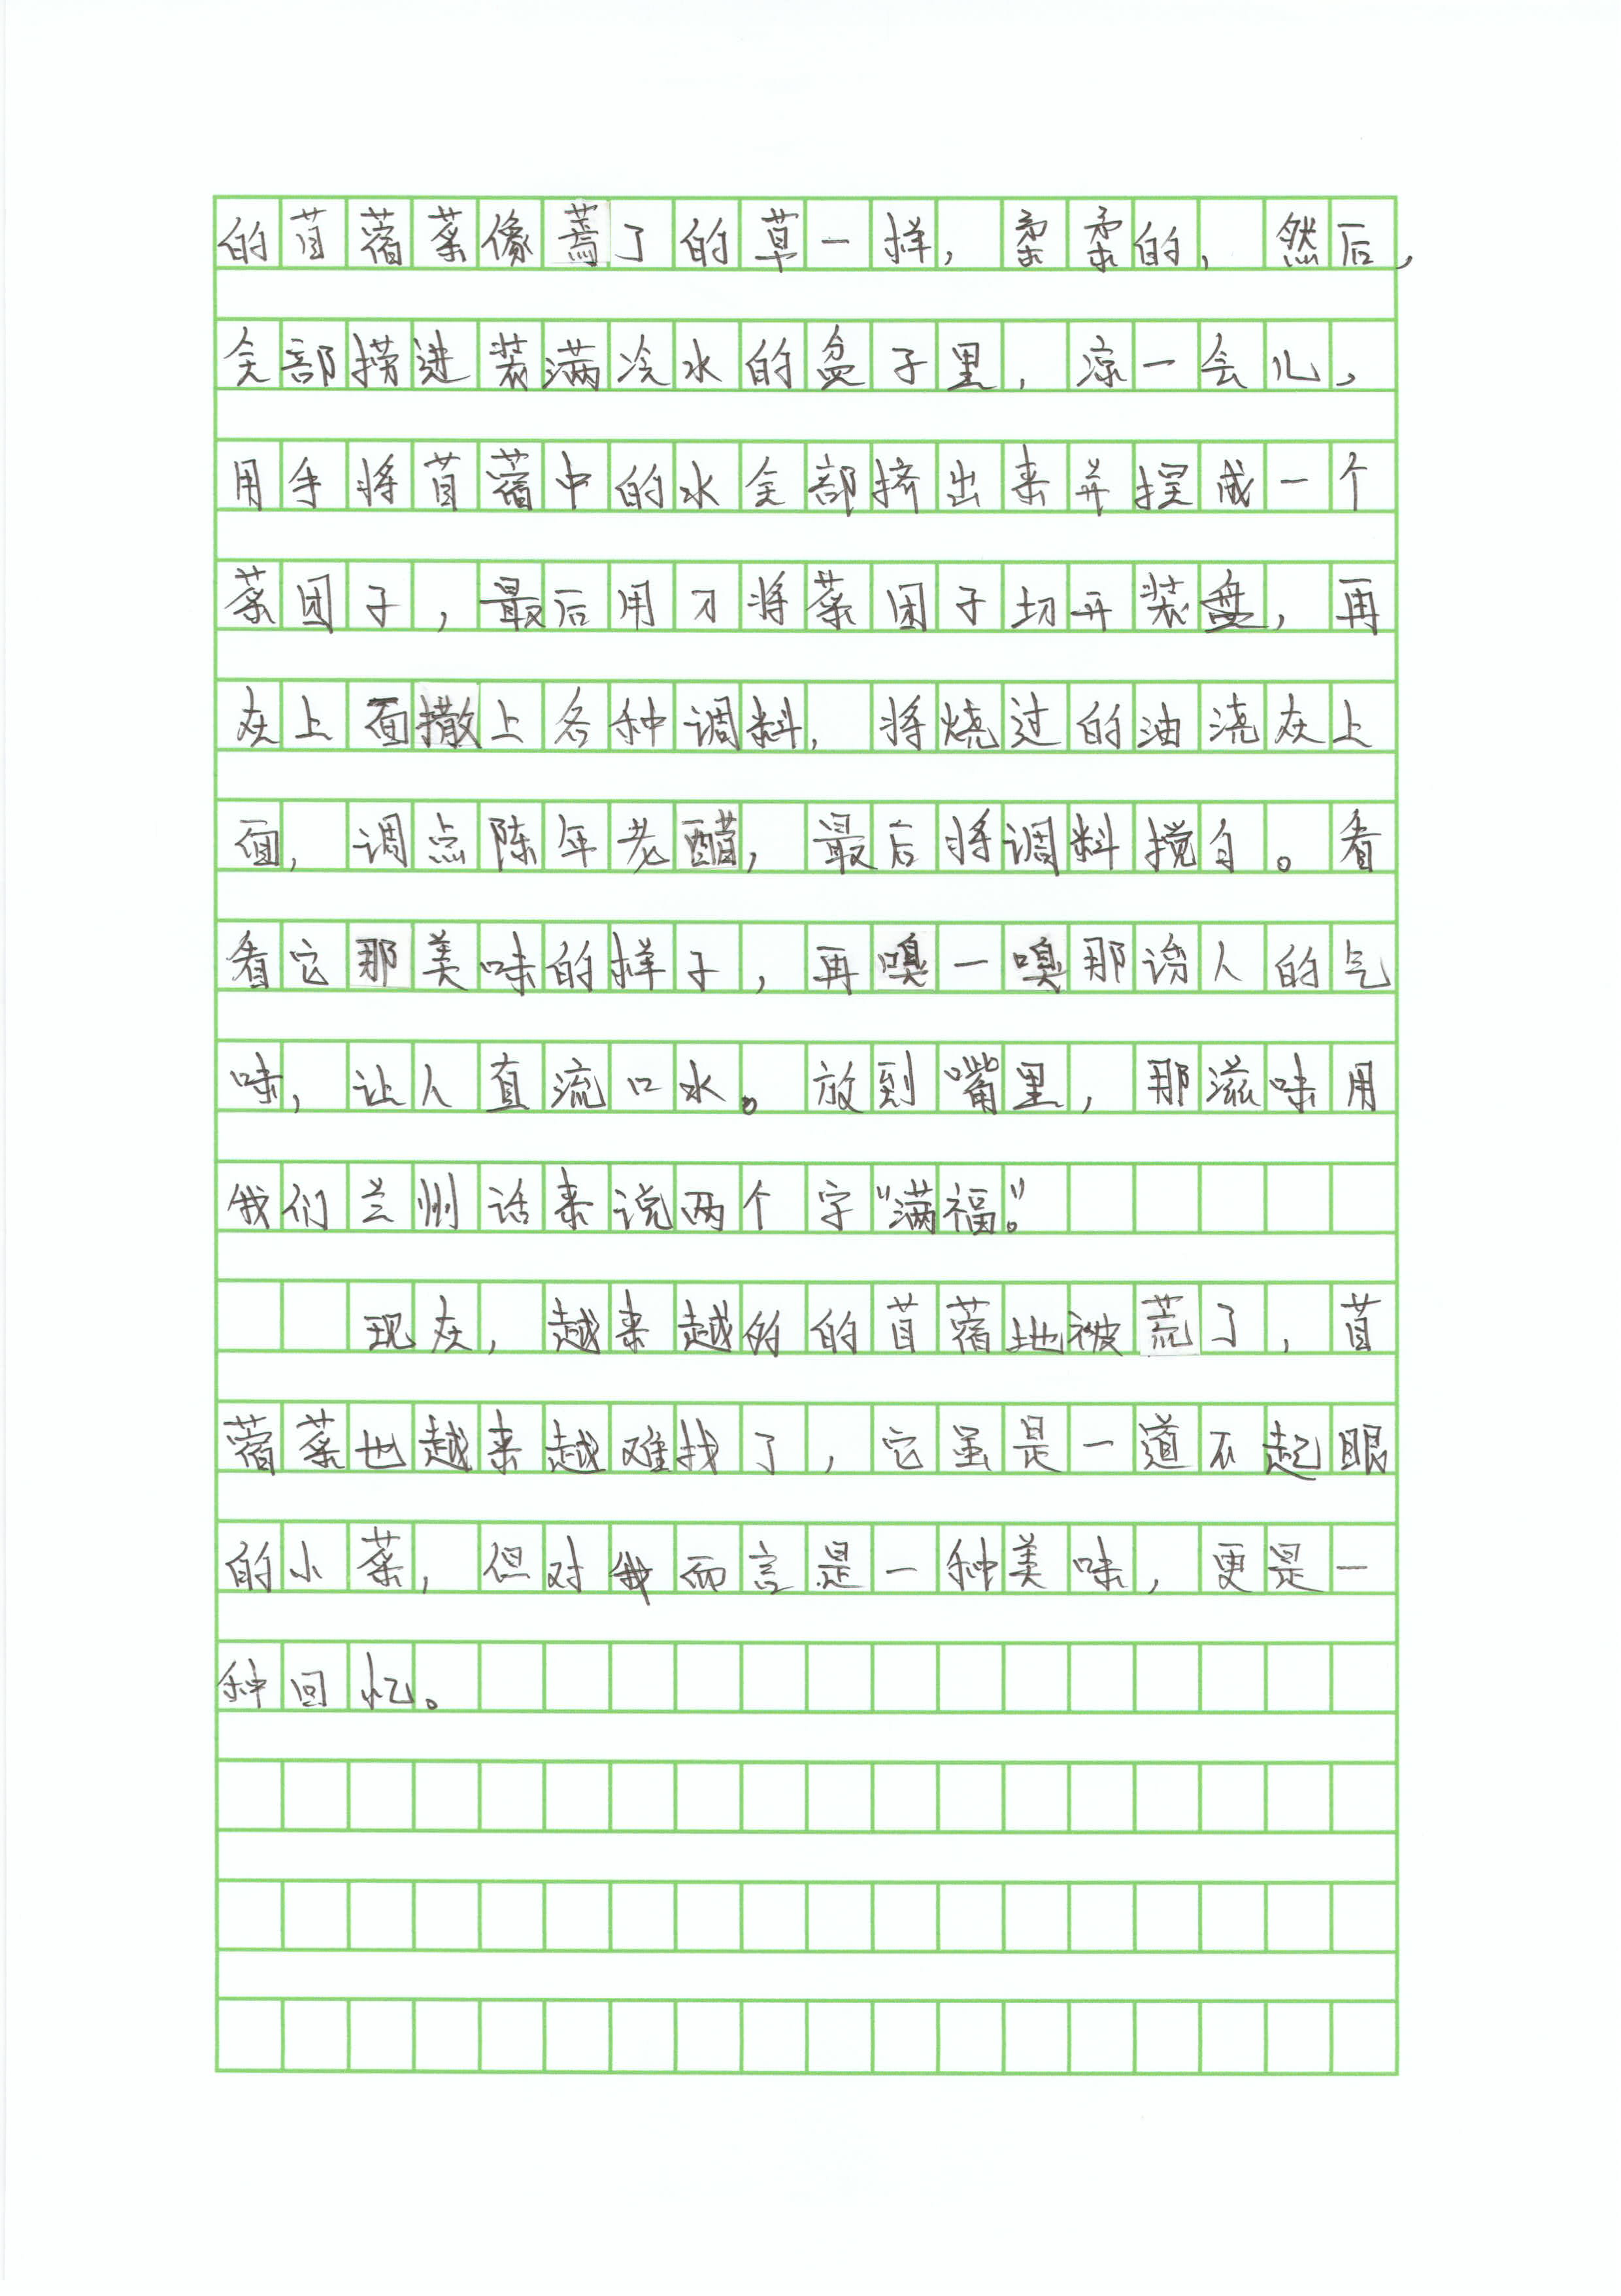 的苜蓿菜像蔫了的草一样，柔柔的，然后，
全部捞进装满冷水的盆子里，凉一会儿，
用手将苜蓿中的水全部挤出来并捏成一个
菜团子，最后用刀将菜团子切开装盘，再
在上面撒上各种调料，将烧过的油浇在上
面，调点陈年老醋，最后将调料搅匀。看
看它那美味的样子，再嗅一嗅那诱人的气
味，让人直流口水。放到嘴里，那滋味用
我们兰州话来说两个字“满福。”
现在，越来越的苜蓿地被荒了，苜
蓿菜也越来越难找了，它虽是一道不起眼
的小菜，但对我而言是一种美味，更是一
种回忆。